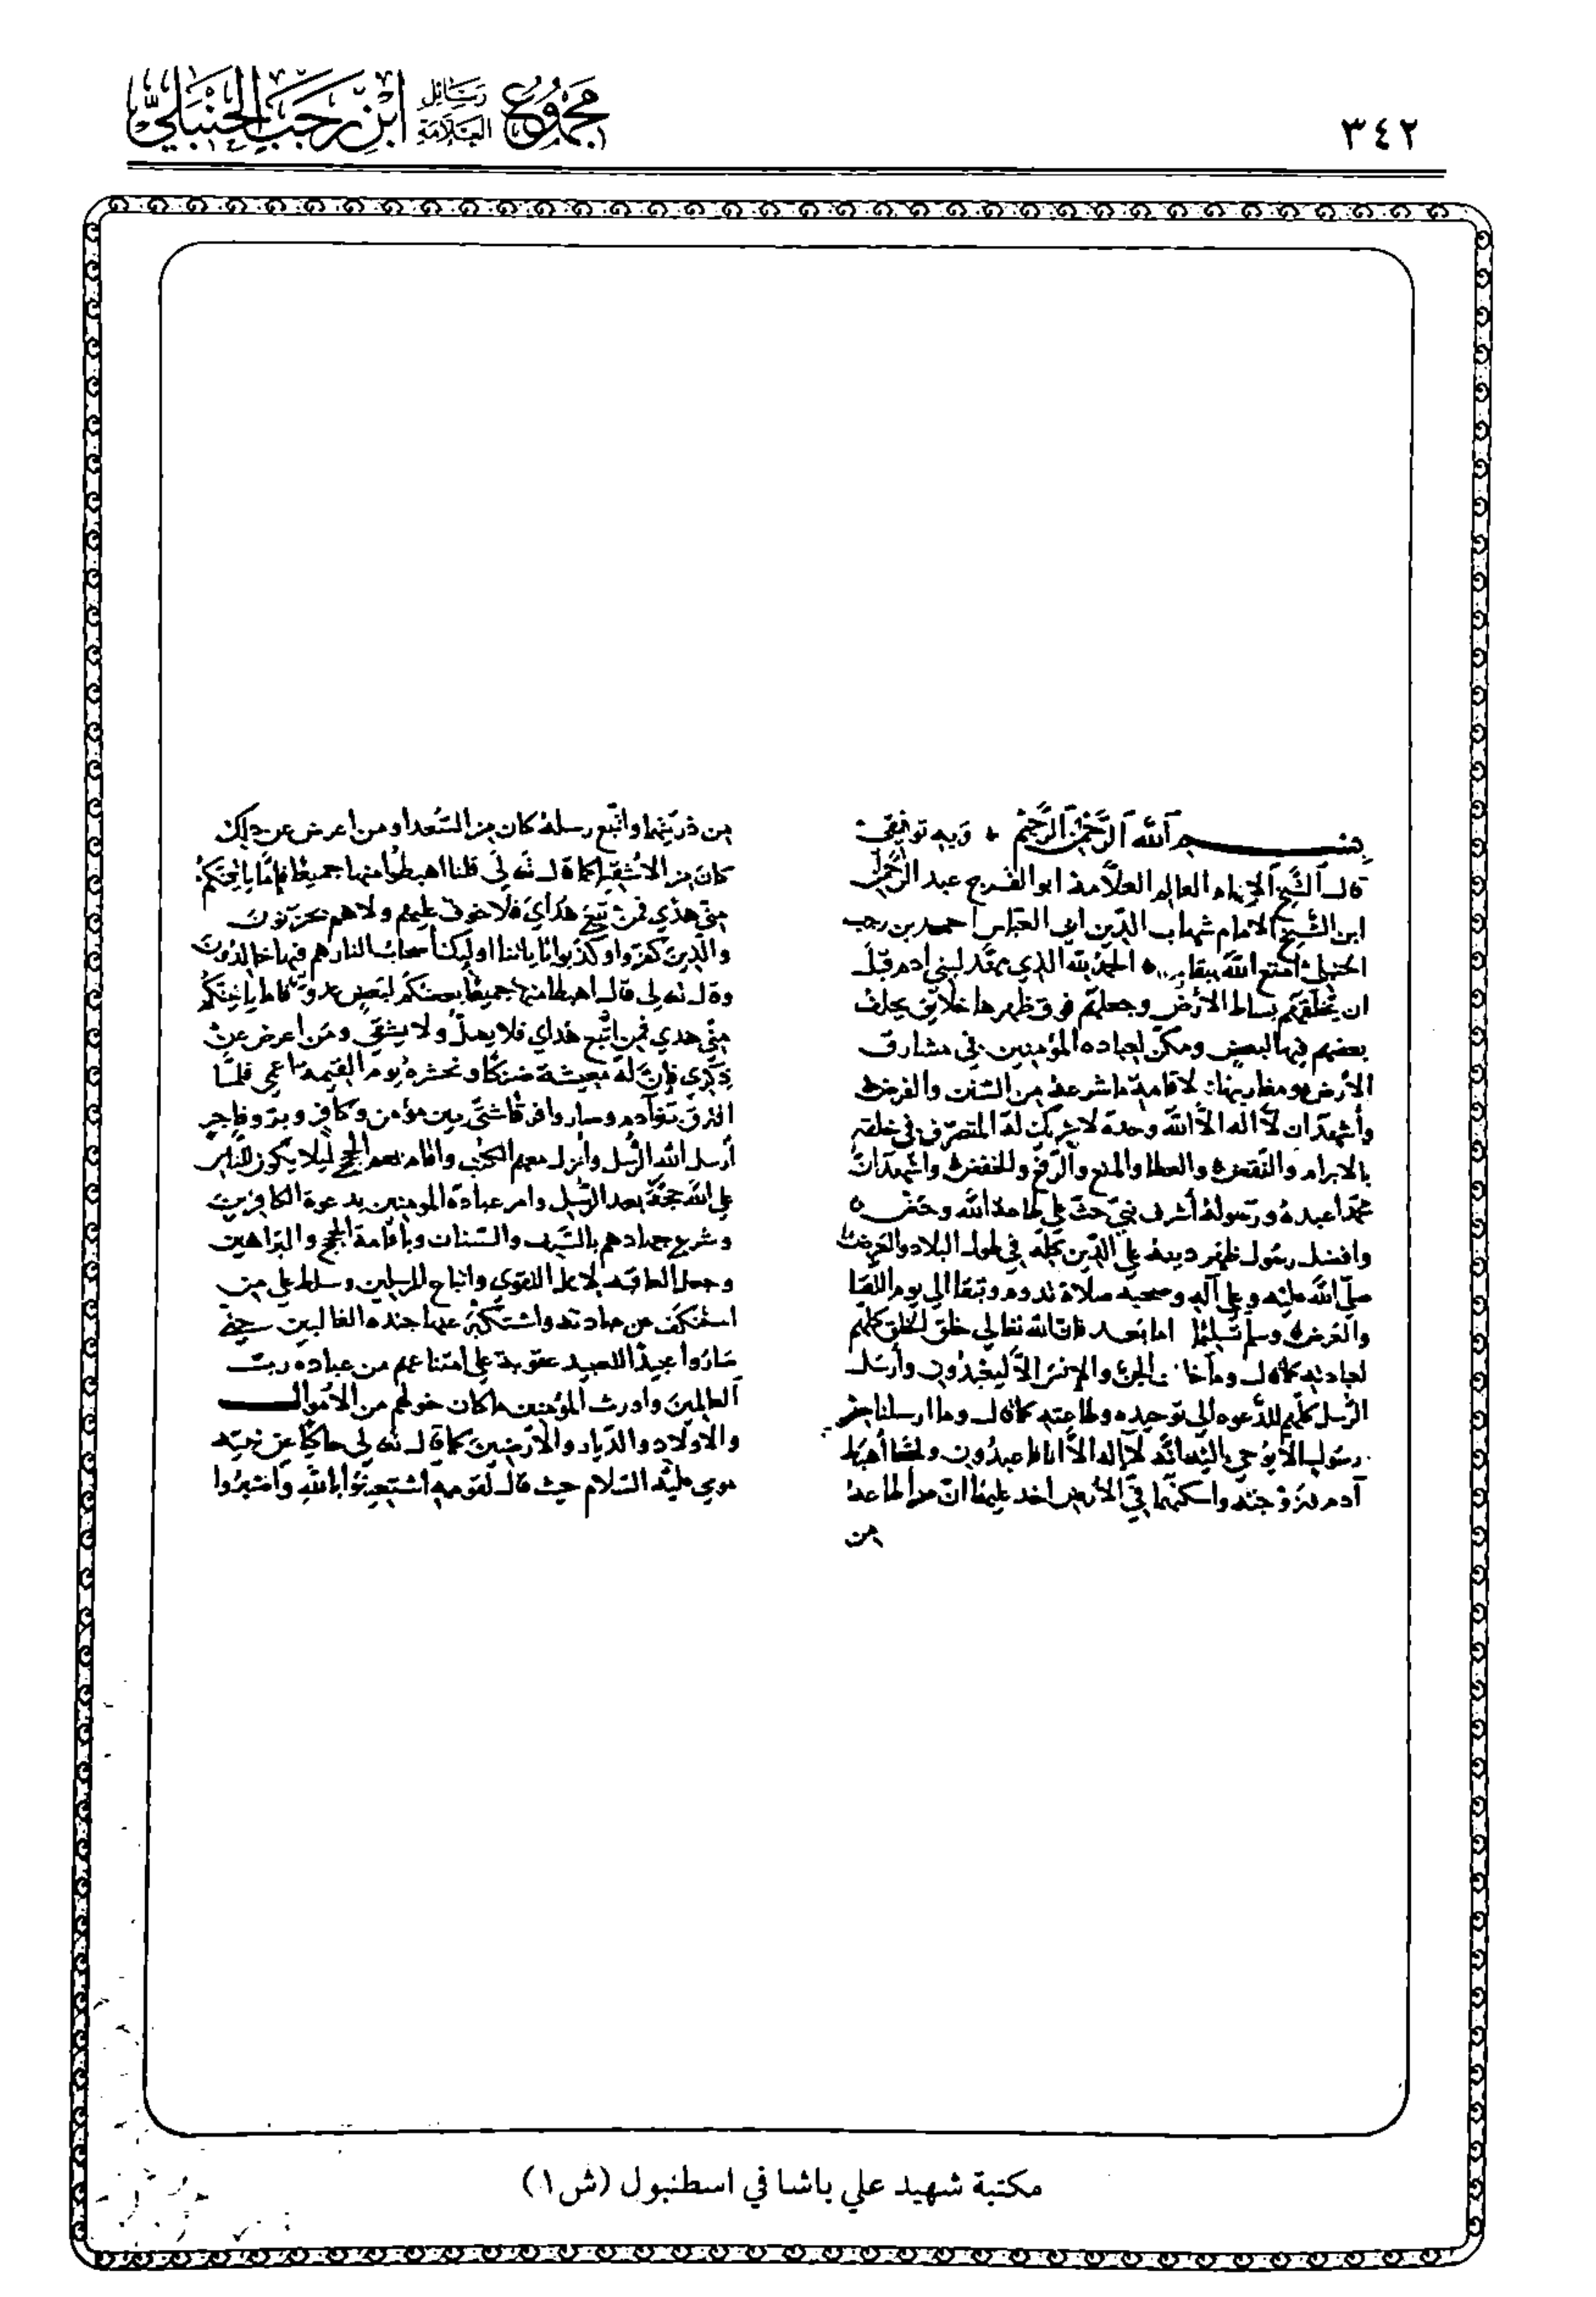 ٣٤٢
مجموع رسائل العلامة ابن رجب الحنبلي
بسم الله الرحمن الرحيم وبه توفيقي
قال الشيخ الإمام العالم العلامة ابو الفرج عبد الرحمن
ابن الشيخ الامام شهاب الدين ابي العباس احمد بن رجب
الحنبلي امتع الله ببقايه الحمد لله الذي مهد لبني ادم قبل
ان يخلقهم بساط الارض وجعلهم فوق ظهرها خلايق يخلف
بعضهم فيها لبعض ومكن لعباده المؤمنين في مشارق
الأرض ومغاربها لاقامة ما شرعه من السنن والفرض
وأشهد ان لا اله الا الله وحده لا شريك له المتصرف في خلقه
بالابرام والنقض والعطا والمنع والرفع والخفض واشهد ان
محمدا عبده ورسوله أشرف نبي حث على طاعة الله وحض
وافضل رسول ظهر دينه على الدين كله في طول البلاد والعرض
صلى الله عليه وعلى آله وصحبه صلاة تدوم وتبقا الى يوم اللقا
والعرض وسلم تسليما اما بعد فان الله تعالى خلق الخلق كلهم
لعبادته كما قال وما خلقت الجن والإنس الا ليعبدون وأرسل
الرسل كلهم للدعوه الى توحيده وطاعته كما قال وما ارسلنا من
رسول الا يوحى اليه انه لا إله الا أنا فاعبدون ولما أهبط
آدم وزوجته واسكنهما في الأرض اخذ عليهما ان من أطاعه
من
من ذريتهما واتبع رسله كان من السعدا ومن اعرض عن ذلك
كان من الاشقيا كما قال تعالى قلنا اهبطوا منها جميعا فإما يأتينكم
مني هدى فمن تبع هداي فلا خوف عليهم ولا هم يحزنون
والذين كفروا وكذبوا باياتنا اوليك أصحاب النار هم فيها خالدون
وقال تعالى قال اهبطا منها جميعا بعضكم لبعض عدو فاما ياتينكم
مني هدى فمن اتبع هداي فلا يضل ولا يشقى ومن اعرض عن
ذكري فإن له معيشة ضنكا ونحشره يوم القيمه اعمى فلما
افترق بنو آدم وصاروا فرقا شتى بين مؤمن وكافر وبر وفاجر
أرسل الله الرسل وأنزل معهم الكتب واقام بهم الحجج ليلا يكون للناس
على الله حجة بعد الرسل وامر عباده المومنين بدعوة الكافرين
وشرع جهادهم بالسيف والسنان وباقامة الحجج والبراهين
وجعل العاقبه لاهل التقوى واتباع المرسلين وسلط على من
استنكف عن عبادته واستكبر عنها جنده الغالبين حتى
صاروا عبيدا للعبيد عقوبة على امتناعهم من عباده رب
العالمين واورث المؤمنين ما كان خولهم من الأموال
والاولاد والديار والأرضين كما قال تعالى حاكيا عن نبيه
موسى عليه السلام حيث قال لقومه استعينوا بالله واصبروا
مكتبة شهيد علي باشا في اسطنبول (ش١)